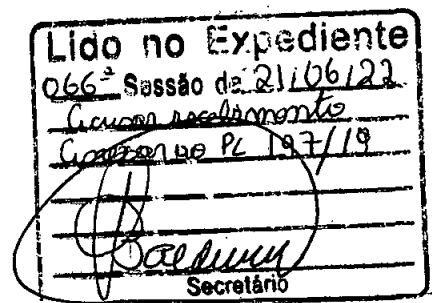 Lido no Expediente
066ª Sessão de 21/06/22
Acusar recebimento
Anexar ao PL 197/19
Secretário